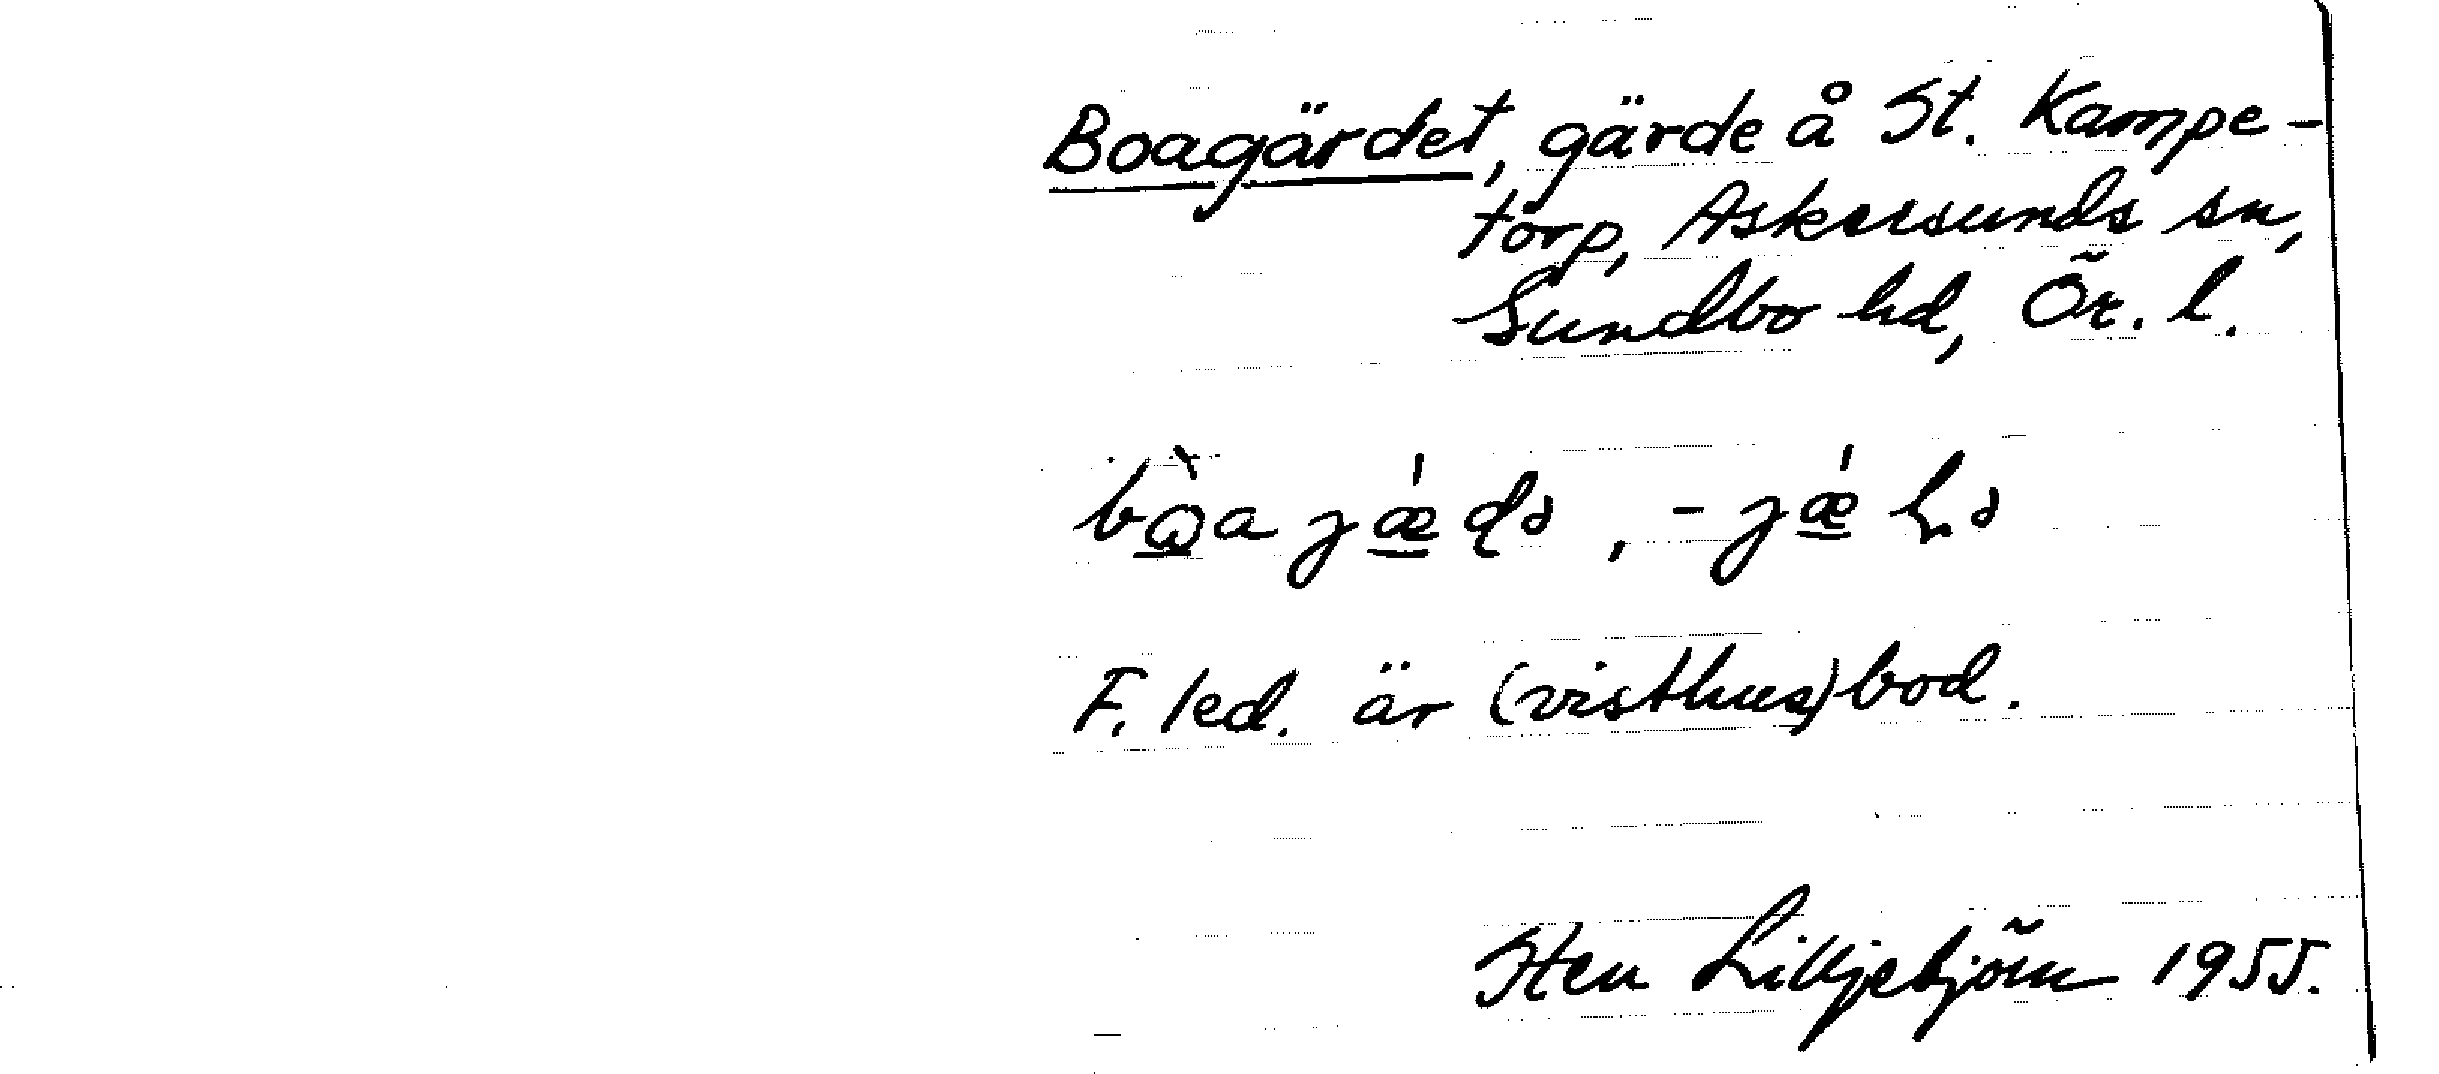 Boagärdet, gärde å St. Kampe-
torp, Askersunds sn,
Sundbo hd, Ör. l.
F. led. är (visthus)bod.
Sten Lilljebjörn 1955.